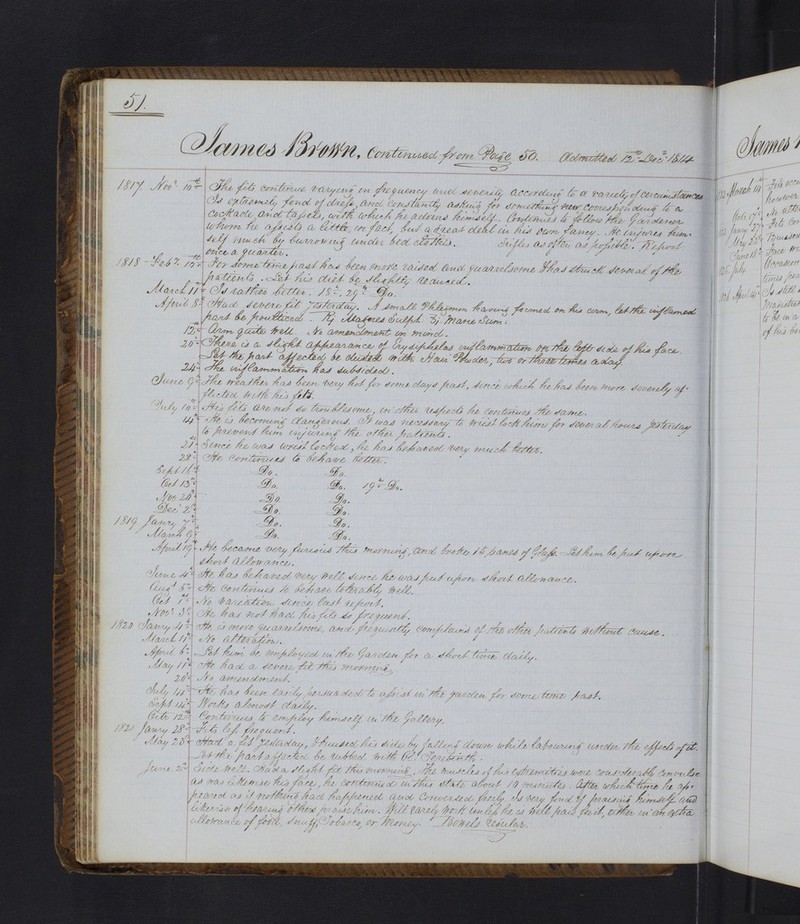 51.
James Brown, continued from Page 50. Admitted 12th Decr 1814
1817 Novr 10th The fits continue varying in frequency and severity according to a variety of circumstances
Is extremely fond of dress, and constantly asking for something new corresponding to a
cockade and tassels, with which he adorns himself. Continues to follow the Gardener
whom he assists a little in fact, but a great deal in his own fancy. He injures him-
self much by burrowing under bed clothes. as often as possible. Report
once a quarter.
1818 Feby. 12th For some time past has been more raised and quarrelsome & has struck several of the
patients. Let his diet be slightly reduced.
March 11th Is rather better. 18th, 29th Do.
April 8th Had severe fit yesterday. A small Phlegmon having formed on his arm, let the inflamed
part be poulticed. Rx Magnes Sulph. Zi Mane Sum.
12th Arm quite well. No amendment in mind.
20th There is a slight appearance of Erysiphelas inflammation on the left side of his face.
Let the part affected be dusted with Hair Powder, two or three times a day.
24th The inflammation has subsided.
June 9th The weather has been very hot for some days past, since which he has been more severely af-
flicted with his fits.
July 10th His fits are not so troublesome, in other respects he continues the same.
14th He is becoming dangerous. It was necessary to wrist lock him for several hours yesterday
to prevent him injuring the other patients.
21st Since he was wrist locked, he has behaved very much better.
28th He continues to behave better.
Sept 16th Do. Do.
Oct 13th Do. Do. 19th Do.
Nov 24th Do. Do.
Decr 2d Do. Do.
1819 Janry 7th Do. Do.
March 9th Do. Do.
April 19th He became very furious this morning, and broke 16 panes of Glass. Let him be put upon
short allowance.
June 4th He has behaved very well since he was put upon short allowance.
Augt 8th He continues to behave tolerably well.
Oct 1st No variation since last report.
Novr 3d He has not had his fits so frequent.
1820 Janry 4th He is more quarrelsome, and frequently complains of the other patients without cause.
March 1st No alteration.
April 6th Let him be employed in the Garden for a short time daily.
May 11th He had a severe fit this morning.
20th No amendment.
July 14th He has been easily persuaded to assist in the garden for some time past.
Sept 14th Works almost daily.
Octr 12th Continues to employ himself in the Gallery.
1821 Janry 28th Fits less frequent.
May 28th Had a fit yesterday, & bruised his side by falling down while labouring under the effects of it.
Let the part affected be rubbed with Ol. Terebinth.
June 2d Side well. Had a slight fit this morning. The muscles of his extremities were considerably convulse
as was likewise his face, he continued in this state about 10 minutes. After which time he ap-
peared as if nothing had happened and conversed freely. Is very fond of praising himself and
likewise of hearing others praise him. Will rarely work unless he is well paid for it, either in an extra
allowance of food, snuff, Tobacco, or Money. Bowels regular.
James
March
Fits occu
however
No alter
Fits
July
April
Is still
of his